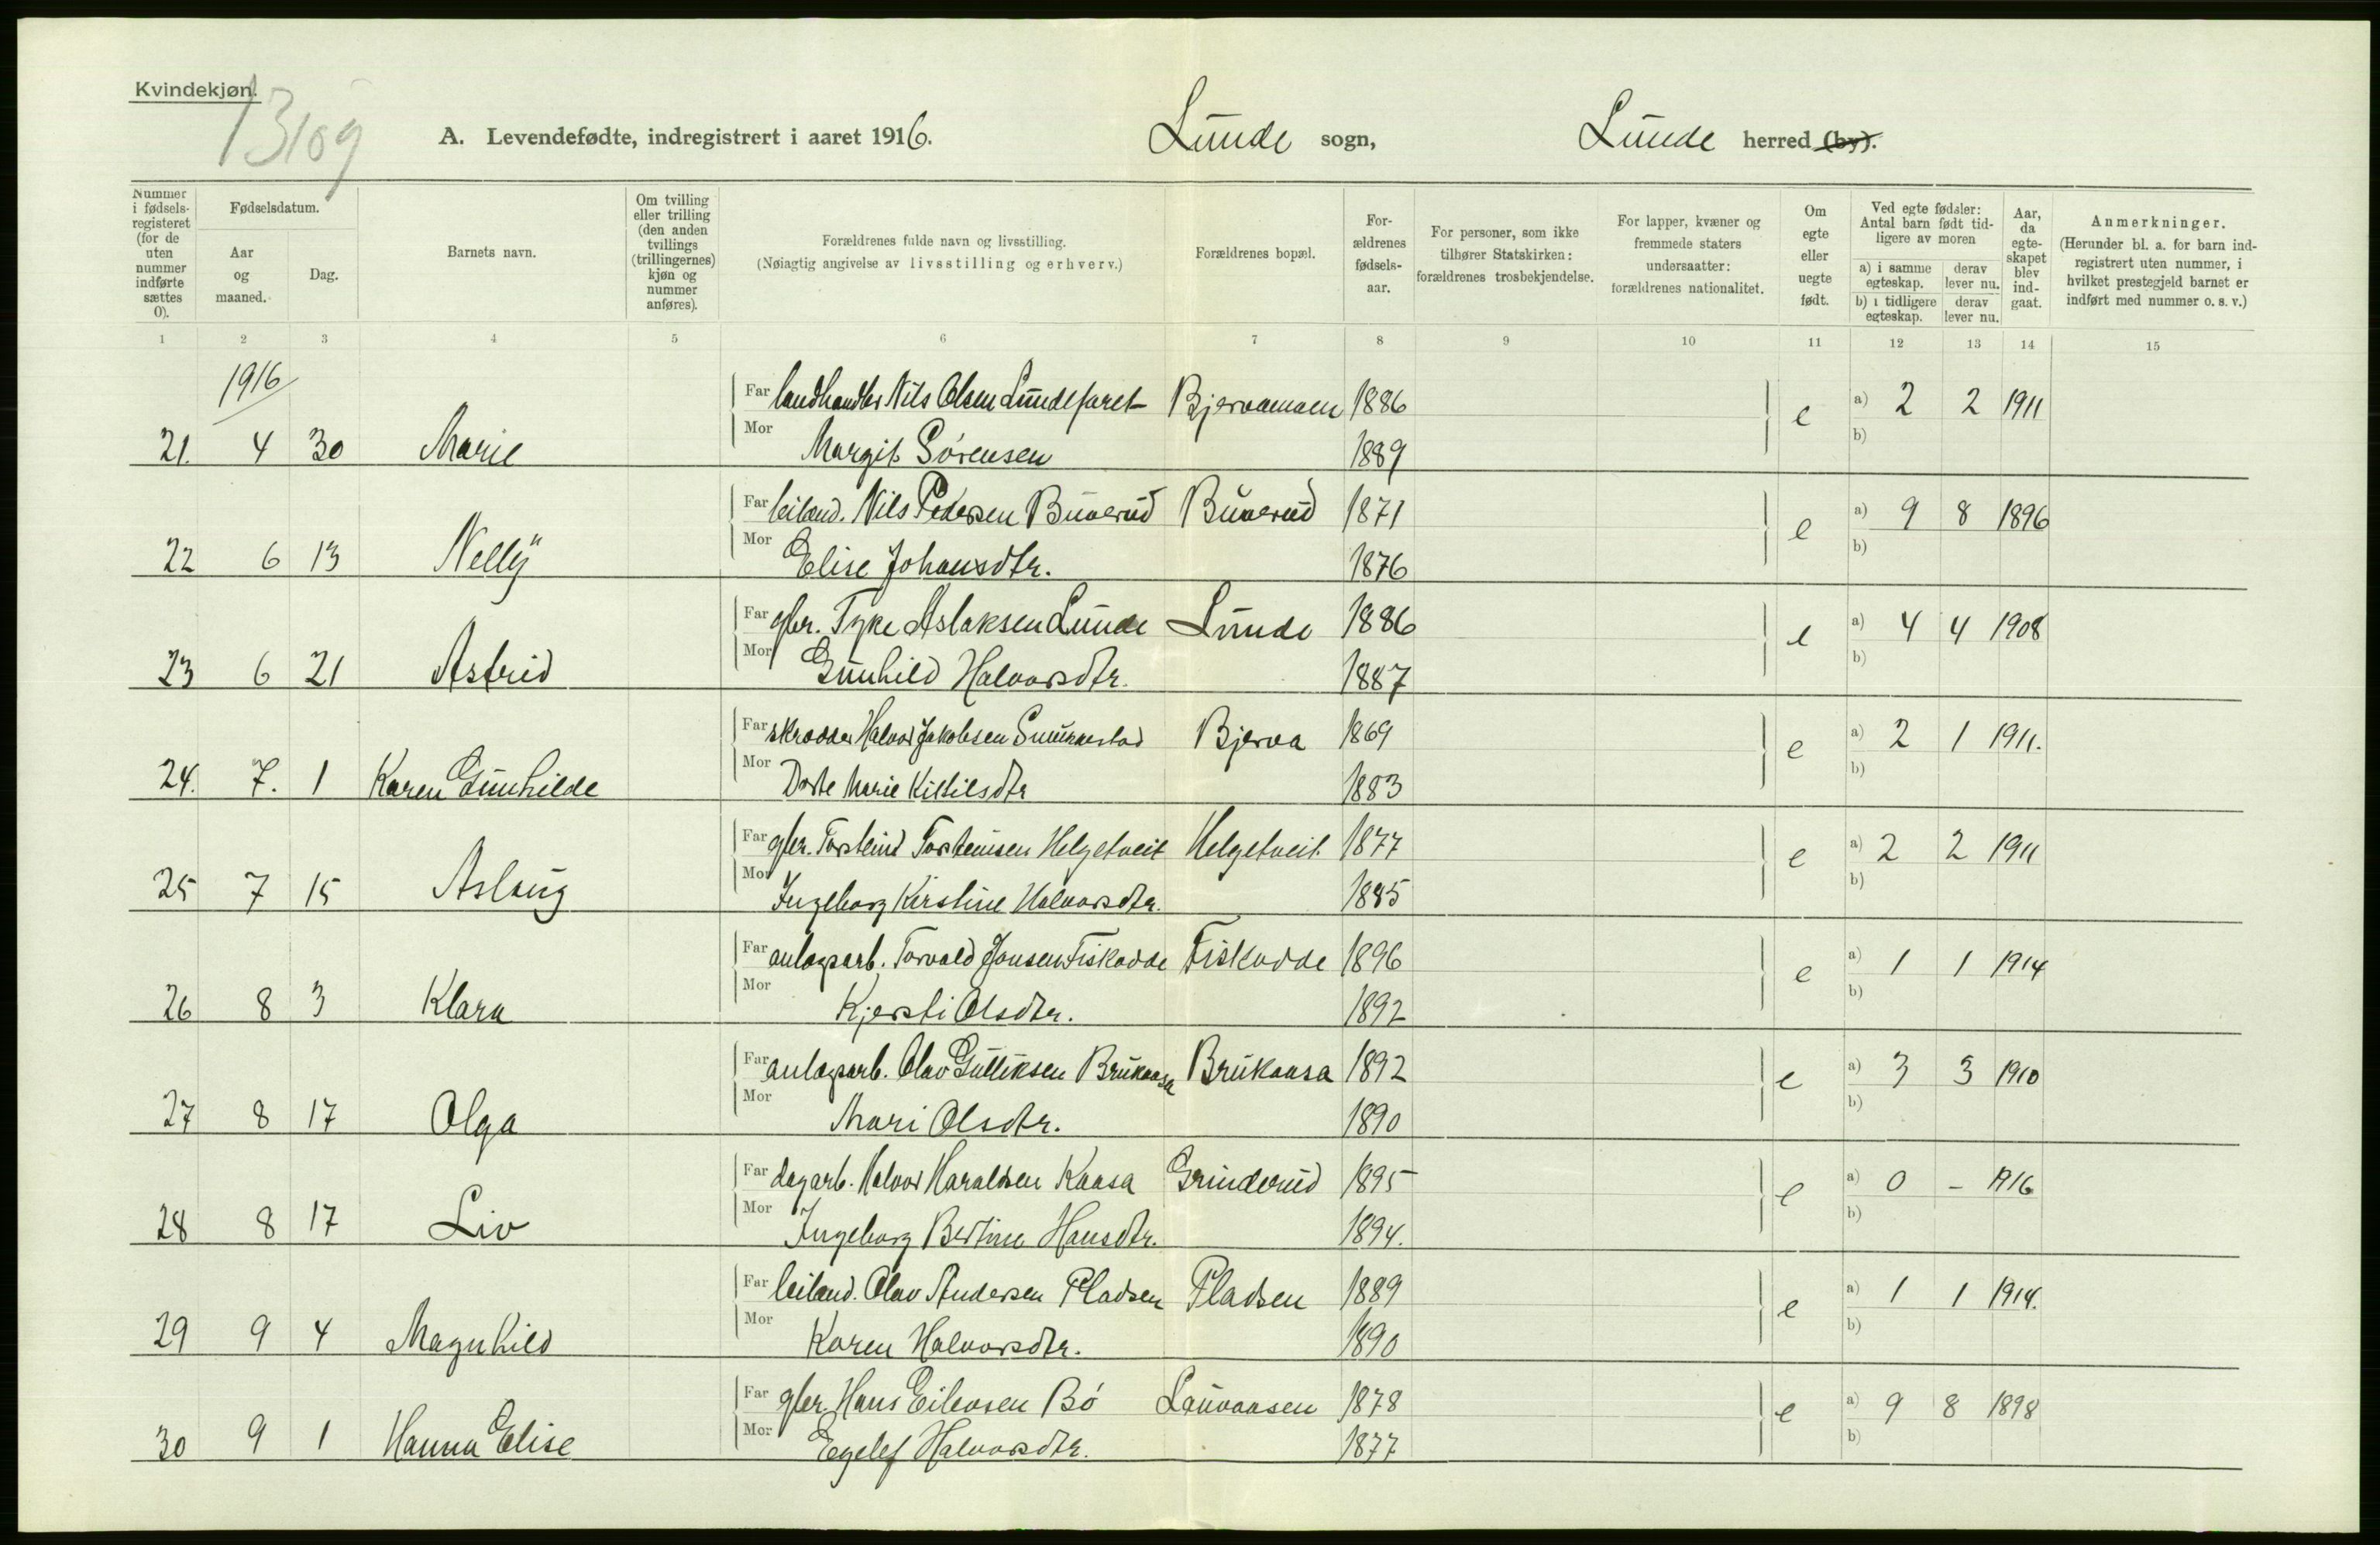 Kvindekjøn.
13109
A. Levendefødte, indregistrert i aaret 1916.
Lunde sogn,
Lunde herred (by).
Nummer i fødsels-registeret (for de uten nummer indførte sættes 0).
Fødselsdatum.
Aar og maaned.
Dag.
Barnets navn.
Om tvilling eller trilling (den anden tvillings (trillingernes) kjøn og nummer anføres).
Forældrenes fulde navn og livsstilling.
(Nøiagtig angivelse av livsstilling og erhverv.)
Forældrenes bopæl.
For-ældrenes fødsels-aar.
For personer, som ikke tilhører Statskirken: forældrenes trosbekjendelse.
For lapper, kvæner og fremmede staters undersaatter: forældrenes nationalitet.
Om egte eller uegte født.
Ved egte fødsler: Antal barn født tid-ligere av moren
a) i samme egteskap.
derav lever nu.
b) i tidligere egteskap.
derav lever nu.
Aar, da egte-skapet blev ind-gaat.
Anmerkninger.
(Herunder bl. a. for barn ind-registrert uten nummer, i hvilket prestegjeld barnet er indført med nummer o. s. v.)
1 2 3 4 5 6 7 8 9 10 11 12 13 14 15
1916
Far landhandler Nils Olsen Lundefaret Bjervamoen 1886 e a) 2 2 1911
21. 4 30 Marie Mor Margit Sörensen 1889 b)
Far leilend. Nils Pedersen Buverud Buverud 1871 e a) 9 8 1896
22 6 13 Nelly Mor Elise Johansdtr. 1876 b)
Far gbr. Tyke Aslaksen Lunde Lunde 1886 e a) 4 4 1908
23 6 21 Astrid Mor Gunhild Halvorsdtr. 1887 b)
Far skrædder Halvor Jakobsen Bjerva 1869 e a) 2 1 1911.
24. 7. 1 Karen Gunhilde Mor Dorte Marie Kittilsdtr 1883 b)
Far gbr. Torstein Torsteinsen Helgetveit Helgetveit 1877 e a) 2 2 1911
25 7 15 Aslaug Mor Ingeborg Kirstine Halvorsdtr. 1885 b)
Far anlægsarb. Torvald Jonsen Fiskodde Fiskodde 1896 e a) 1 1 1914
26 8 3 Klara Mor Kjersti Olsdtr. 1892 b)
Far anlægsarb. Olav Gulliksen Brukaasa Brukaasa 1892 e a) 3 3 1910
27 8 17 Olga Mor Mari Olsdtr. 1890 b)
Far dagarb. Halvor Haraldsen Kaasa Grinderud 1895 e a) 0 - 1916
28 8 17 Liv Mor Ingeborg Bertine Hansdtr. 1894. b)
Far leilend. Olav Andersen Pladsen Pladsen 1889 e a) 1 1 1914.
29 9 4 Magnhild Mor Karen Halvorsdtr. 1890 b)
Far gbr. Hans Eilevsen Bö Lauvaasen 1878 e a) 9 8 1898
30 9 1 Hanna Elise Mor Egelef Halvorsdtr. 1877 b)